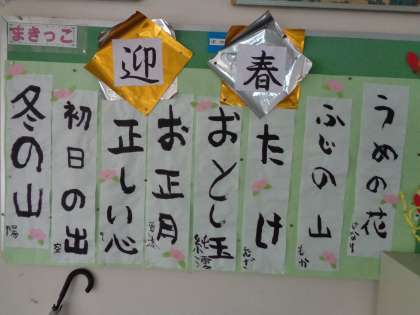 まきっこ
迎春
うめの花
ふじの山
もか
たけ
おとし玉
お正月
正しい心
初日の出
冬の山
陽